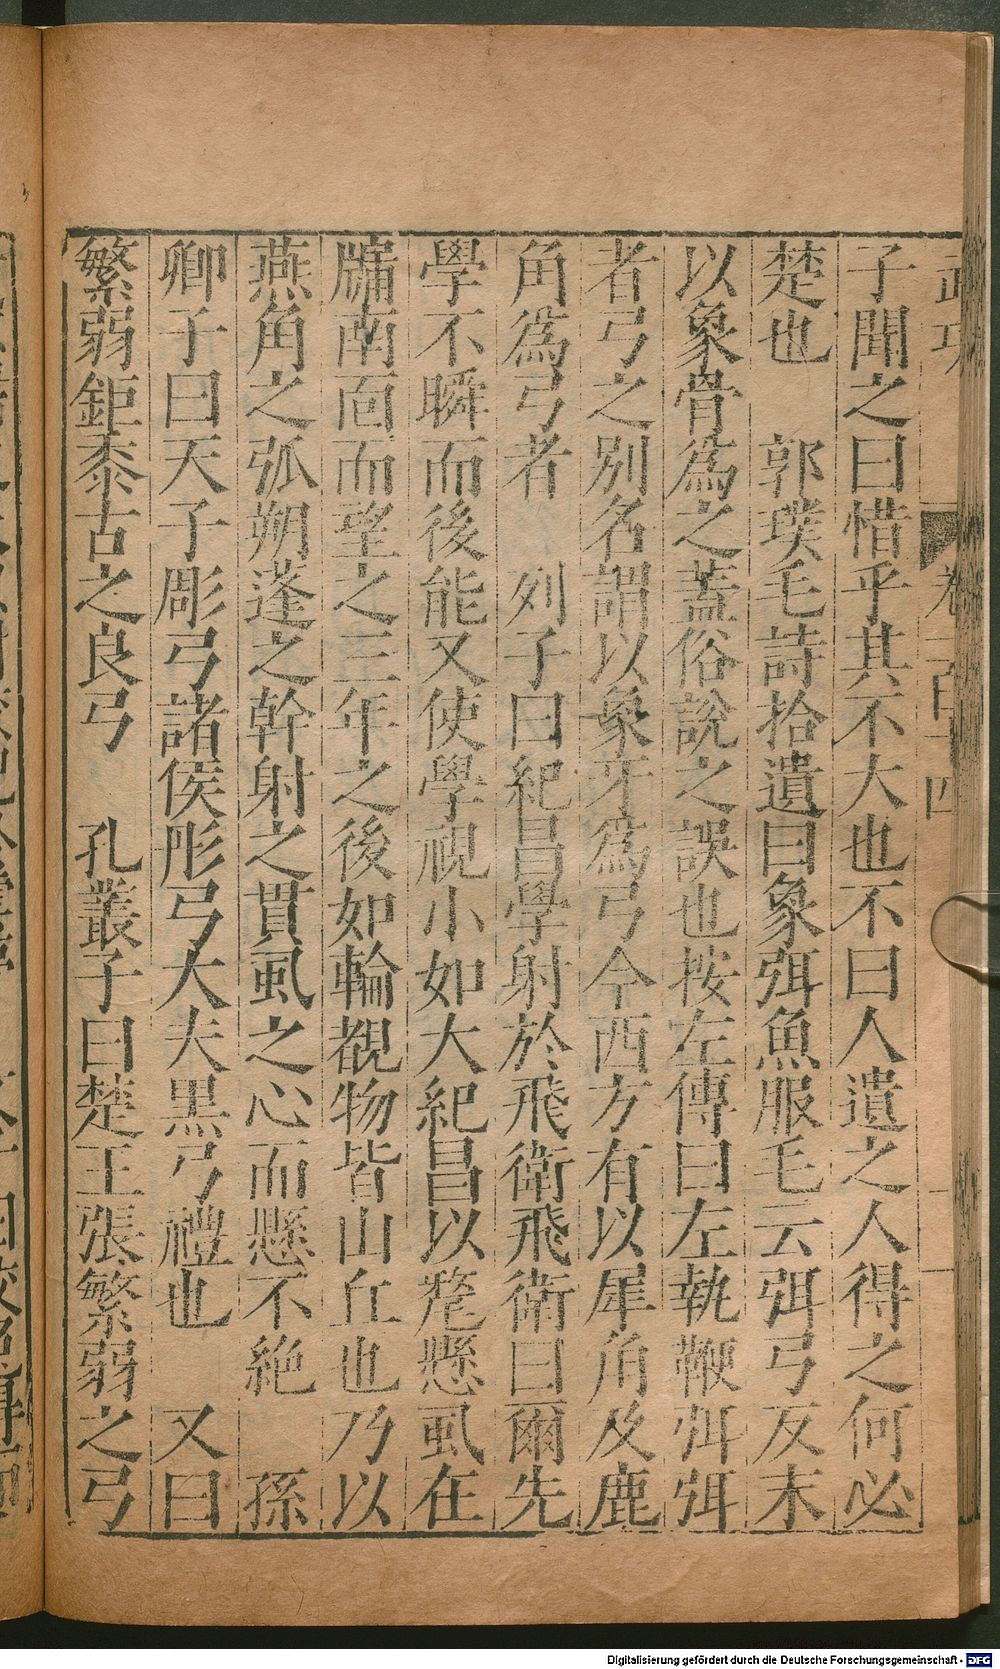 子聞之曰惜乎其不大也不曰人遺之人得之何必
楚也　郭璞毛詩拾遺曰象弭魚服毛云弭弓反末
以象骨爲之蓋俗說之誤也按左傳曰左執鞭弭弭
者弓之別名謂以象牙爲弓今西方有以犀角及鹿
角爲弓者　列子曰紀昌學射於飛衛飛衛曰爾先
學不瞬而後能又使學視小如大紀昌以氂懸虱在
牖南面而望之三年之後如輪覩物皆山丘也乃以
燕角之弧朔蓬之幹射之貫虱之心而懸不絶　孫
卿子曰天子彫弓諸侯彤弓大夫黒弓禮也　又曰
繁弱鉅黍古之良弓　孔叢子曰楚王張繁弱之弓
武功　卷 百 四
Digitalisierung gefördert durch die Deutsche Forschungsgemeinschaft - DFG